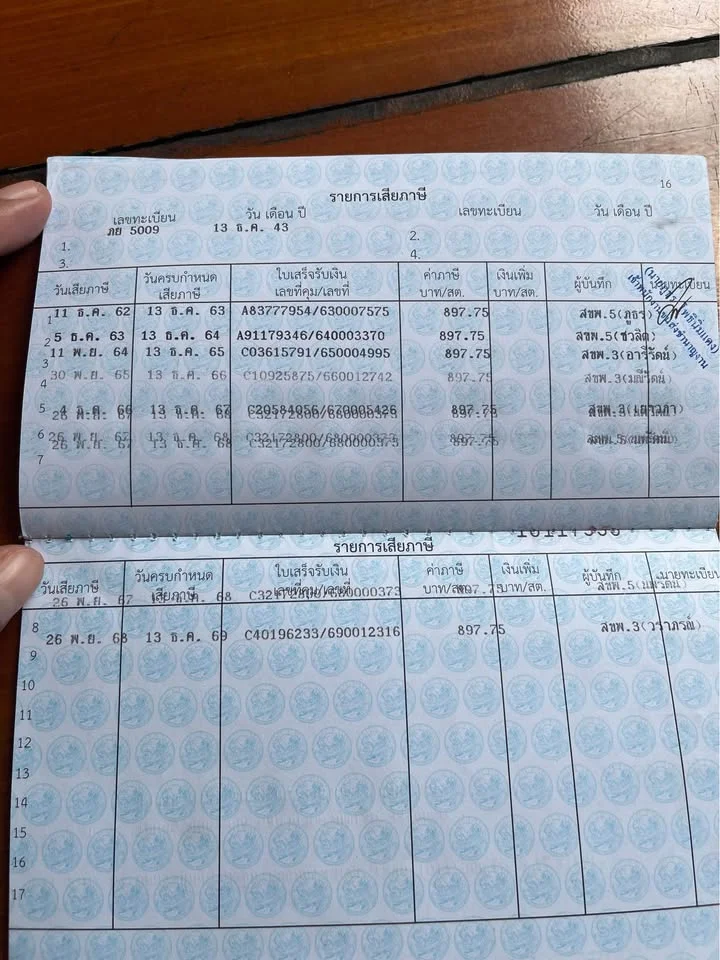 16
รายการเสียภาษี
เลขทะเบียน วัน เดือน ปี เลขทะเบียน วัน เดือน ปี
1. ภย 5009 13 ธ.ค. 43 2.
3. 4.
วันเสียภาษี วันครบกำหนดเสียภาษี ใบเสร็จรับเงินเลขที่คุม/เลขที่ ค่าภาษีบาท/สต. เงินเพิ่มบาท/สต. ผู้บันทึก นายทะเบียน
1 11 ธ.ค. 62 13 ธ.ค. 63 A83777954/630007575 897.75 สขพ.5(ภูธร)
2 5 ธ.ค. 63 13 ธ.ค. 64 A91179346/640003370 897.75 สขพ.5(ชวลิต)
3 11 พ.ย. 64 13 ธ.ค. 65 C03615791/650004995 897.75 สขพ.3(อารีรัตน์)
4 30 พ.ย. 65 13 ธ.ค. 66 C10925875/660012742 897.75 สขพ.3(มณีรัตน์)
5 4 ธ.ค. 66 13 ธ.ค. 67 C20584056/670005426 897.75 สขพ.3(เยาวภา)
6 26 พ.ย. 67 13 ธ.ค. 68 C32172800/680000373 897.75
26 พ.ย. 67 13 ธ.ค. 68 C32172800/680000373 897.75
7
รายการเสียภาษี
วันเสียภาษี วันครบกำหนดเสียภาษี ใบเสร็จรับเงินเลขที่คุม/เลขที่ ค่าภาษีบาท/สต. เงินเพิ่มบาท/สต. ผู้บันทึก นายทะเบียน
26 พ.ย. 67 C32172800/680000373 897.75
8
26 พ.ย. 68 13 ธ.ค. 69 C40196233/690012316 897.75 สขพ.3(วราภรณ์)
9
10
11
12
13
14
15
16
17